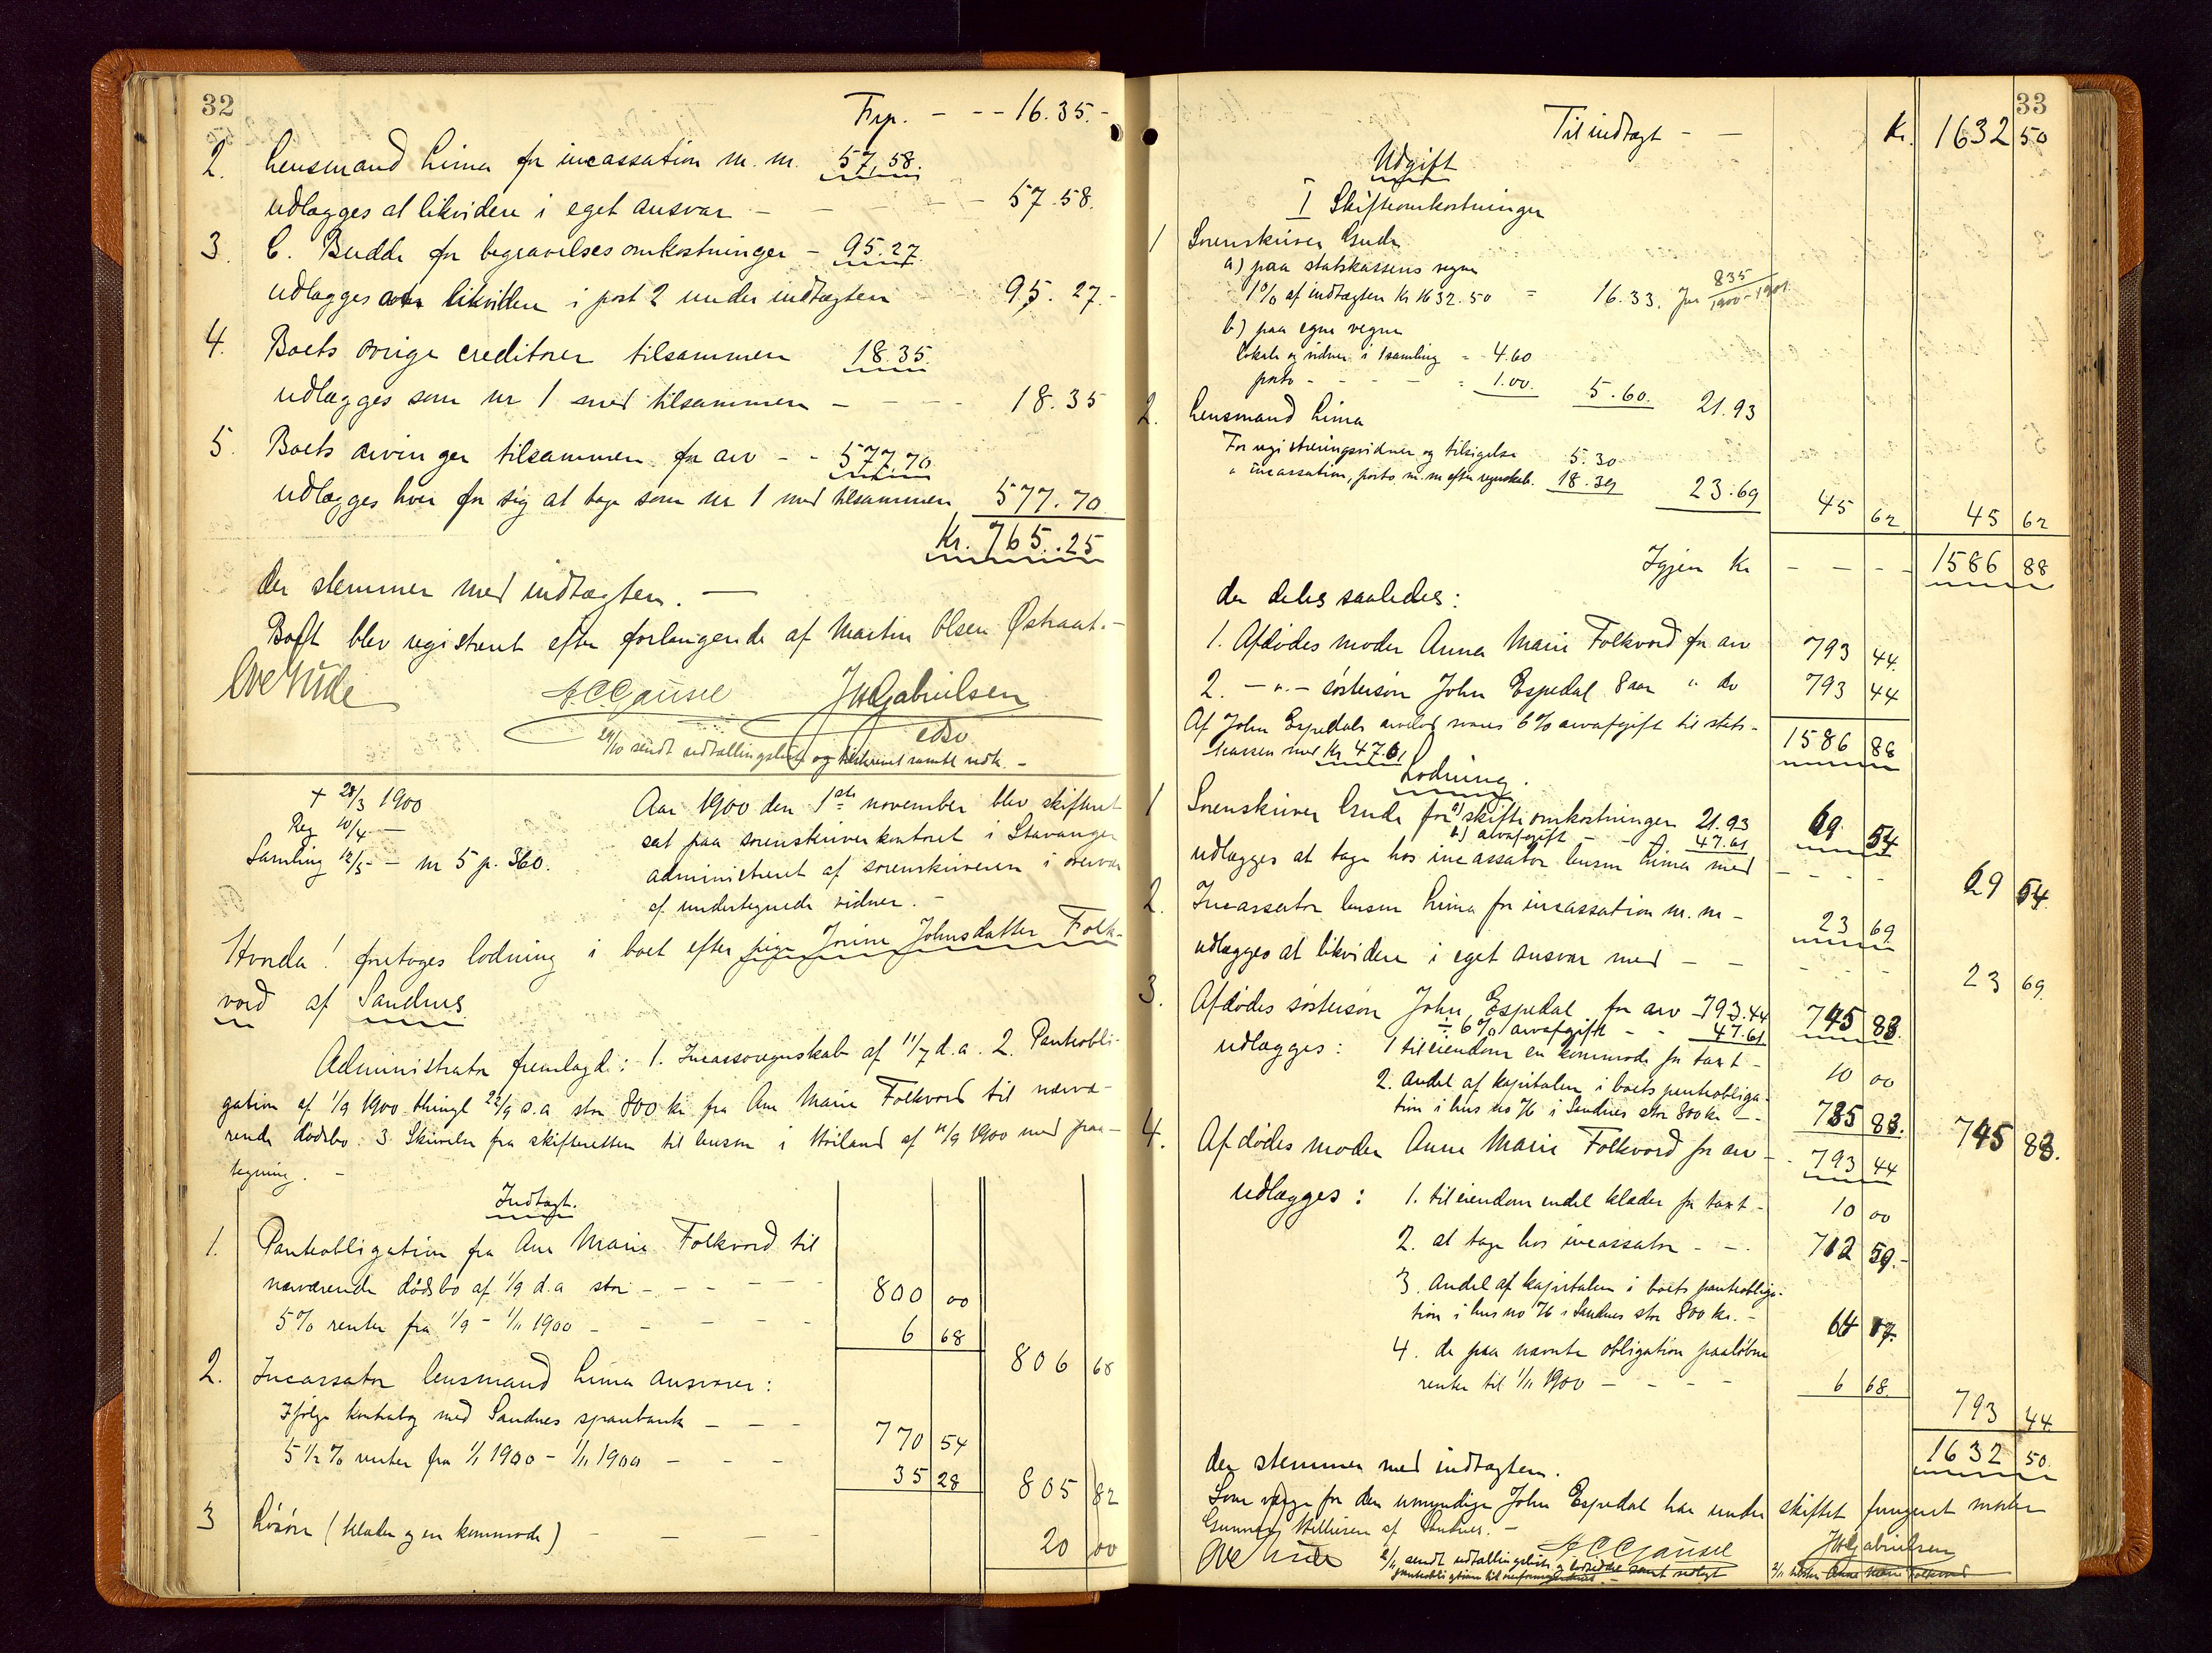 32
Trp. - - - 16.35.-
2. Lensmand Lima for incassation m. m. 57.58.
udlægges at likvidere i eget ansvar - - - - 57.58.
3. C. Budde for begravelsesomkostninger - 95.27
udlægges likvidere i post 2 under indtægten 95.27.-
4. Boets øvrige creditorer tilsammen 18.35.
udlægges som nr 1 med tilsammen - - - - 18.35
5. Boets arvinger tilsammen for arv - - 577.70
udlægges hver for sig at tage som nr 1 med tilsammen 577.70
Kr. 765.25
der stemmer med indtægten. -
Boet blev registreret efter forlangende af Martin Olsen Østraat.-
Ove Gude A.C. Gausel J.W. Gabrielsen
29/10 sendt udtallingsliste og samtl. vedk. -
+ 28/3 1900
Reg 10/4 -
Samling 12/5 - nr 5 p. 360.
Aar 1900 den 1ste november blev skifteret
sat paa sorenskriverkontoret i Stavanger
administreret af sorenskriveren i overvær
af undertegnede vidner. -
Hvorda! foretoges lodning i boet efter pige Jorine Johnsdatter Folk-
vord af Sandnes
Administrator fremlagde: 1. Incassoregnskab af 11/7 d.a. 2. Pantobli-
gation af 1/9 1900 thingl 22/9 s.a stor 800 kr fra Ane Marie Folkvord til nærvæ-
rende dødsbo. 3. Skrivelse fra skifteretten til lensm i Høiland af 11/9 1900 med paa-
tegning. -
Indtægt.
1. Panteobligation fra Ane Marie Folkvord til
nærværende dødsbo af 1/9 d.a stor - - - 800 00
5% renter fra 1/9 - 1/11 1900 - - - - - 6 68 806 68
2. Incassator lensmand Lima ansvarer:
Ifølge kontrabog med Sandnes sparebank - - - 770 54
5 1/2 % renter fra 1/1 1900 - 1/11 1900 - - - 35 28 805 82
3 Løsøre (klæder og en kommode) - - - - 20 00
33
Til indtægt - - Kr. 1632 50
Udgift
I Skifteomkostninger
1 Sorenskriver Gude
a) paa statskassens vegne
1% af indtægten Kr 1632.50 = 16.33. Jnr 835/1900-1901
b) paa egne vegne
lokale og vidner i 1 samling = 4.60
porto - - - - = 1.00. 5.60. 21.93
2. Lensmand Lima
For registreringsvidner og tilsigelse 5.30
" incassation, porto m. m efter regnskab. 18.39 23.69 45 62 45 62
Igjen Kr - - - - 1586 88
der deles saaledes:
1. Afdødes moder Anna Marie Folkvord for arv 793 44.
2. - " - søstersøn John Espedal 8 aar " do 793 44
Af John Espedals arvelod svares 6% arveafgift til stats-
kassen med Kr 47.61 1586 88
Lodning.
1 Sorenskriver Gude for a) skifteomkostninger 21.93
b) arveafgift - - 47.61 69 54
udlægges at tage hos incassator lensm Lima med - - - - 69 54.
2. Incassator lensm Lima for incassation m. m - 23 69
udlægges at likvidere i eget ansvar med - - - - - 23 69.
3. Afdødes søstersøn John Espedal for arv 793.44
÷ 6% arveafgift - - 47.61 745 83.
udlægges: 1 til eiendom en kommode for taxt - 10 00
2. Andel af kapitalen i boets panteobliga-
tion i hus no 76 i Sandnes stor 800 kr - - 735 83. 745 83.
4. Afdødes moder Anne Marie Folkvord for arv - - 793 44
udlægges: 1. til eiendom endel klæder for taxt - 10 00
2. at tage hos incassator - - - 712 59.-
3. Andel af kapitalen i boets panteobliga-
tion i hus no 76 i Sandnes stor 800 kr. - 64 17.
4. de paa nævnte obligation paaløbne
renter til 1/11 1900 - - - - 6 68. 793 44.
der stemmer med indtægten. 1632 50.
Som værge for den umyndige John Espedal har under skiftet fungeret
af Sandnes. -
Ove Gude A C Gausel J W Gabrielsen
2/11 sendt udtallingsliste samt udlagt
panteobligation til 2/11 Anne Marie Folkvord